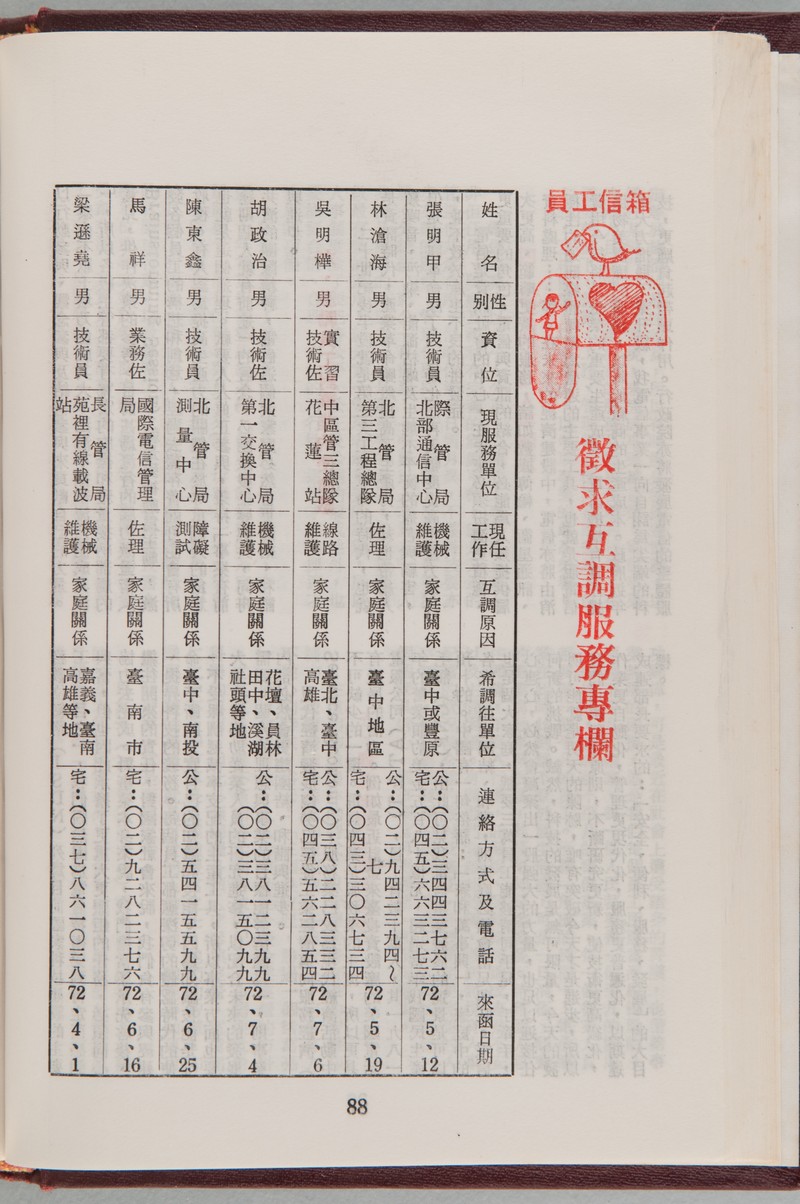 員工信箱
徵求互調服務專欄
姓名
性別
資位
現服務單位
現任工作
互調原因
希調往單位
連絡方式及電話
來函日期
張明甲
男
技術員
際管局
北部通信中心
機械
維護
家庭關係
臺中或豐原
公：(〇二)三四四三七六二
宅：(〇四五)六六三二七三
72、5、12
林滄海
男
技術員
北管局
第三工程總隊
佐理
家庭關係
臺中地區
公：(〇二)九四二三九四～七
宅：(〇四三)三〇六七三四
72、5、19
吳明樺
男
實習
技術佐
中區管三總隊
花蓮站
線路
維護
家庭關係
臺北、臺中
高雄
公：(〇三八)二二八三三二
宅：(〇四五)五六二八五四
72、7、6
胡政治
男
技術佐
北管局
第一交換中心
機械
維護
家庭關係
花壇、員林
田中、溪湖
社頭等地
公：(〇二)三八一二三九九
(〇二)三八一五〇九九
72、7、4
陳東鑫
男
技術員
北管局
測量中心
障礙
測試
家庭關係
臺中、南投
公：(〇二)五四一五五九九
72、6、25
馬祥
男
業務佐
國際電信管理
局
佐理
家庭關係
臺南市
宅：(〇二)九二八二三七六
72、6、16
梁遜堯
男
技術員
長管局
苑裡有線載波
站
機械
維護
家庭關係
嘉義、臺南
高雄等地
宅：(〇三七)八六一〇三八
72、4、1
88